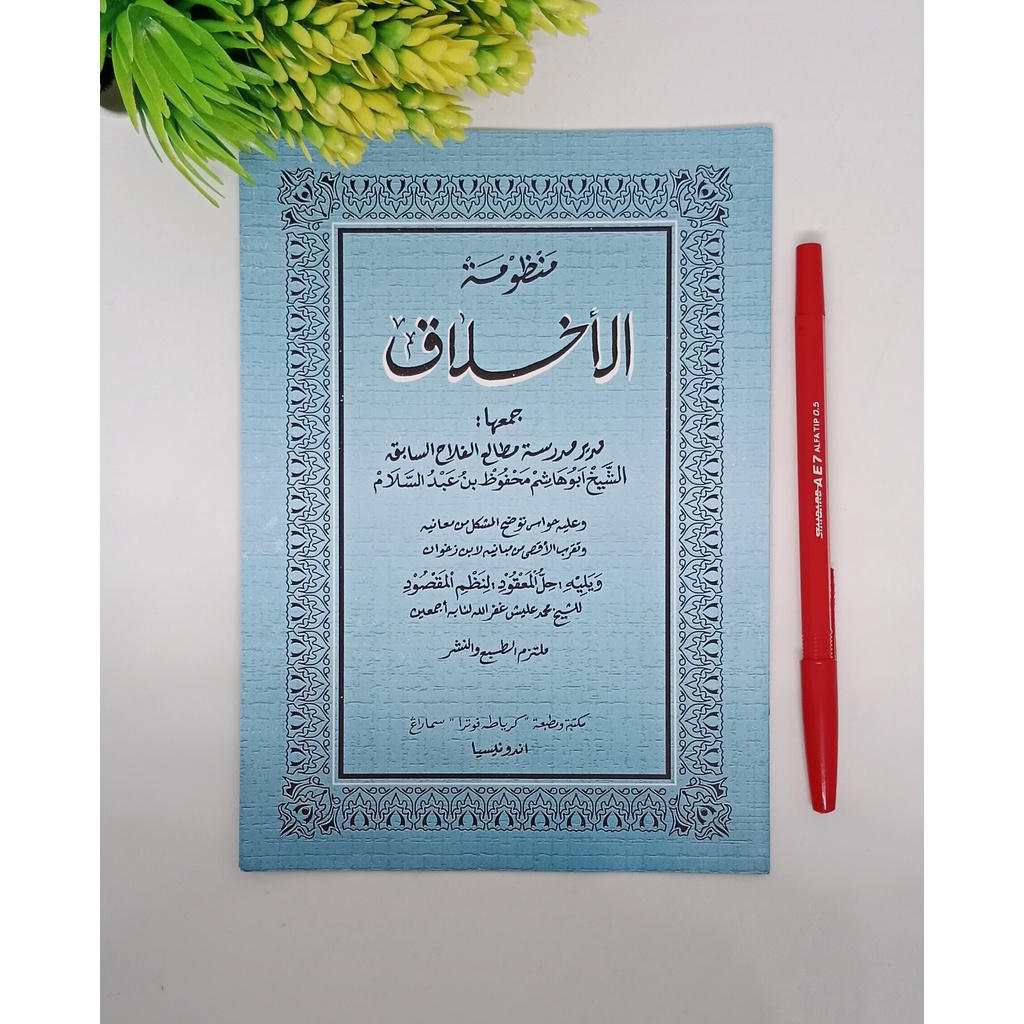 مَنْظُوْمَةْ
الأخلاق
جمعها:
مدير مدرسة مطالع الفلاح السابقه
الشَّيْخْ اَبُوْهَاشِمْ مَحْفُوْظْ بِنْ عَبْدُ السَّلَامْ
وعليه حواس توضح المشكل من معانيه
وتقرب الأقصى من مبانيه لابن زغوان
وَيَلِيْهِ: حِلُّ الْمَعْقُوْدِ: لِنَظْمِ الْمَقْصُوْدِ
للشيخ محمد عليش غفر الله لنا به أجمعين
ملتزم الطبع والنشر
مكتبة ومطبعة "كرياطه فوترا" سماراغ
اندونيسيا
STANDARD AE7 ALFA TIP 0.5